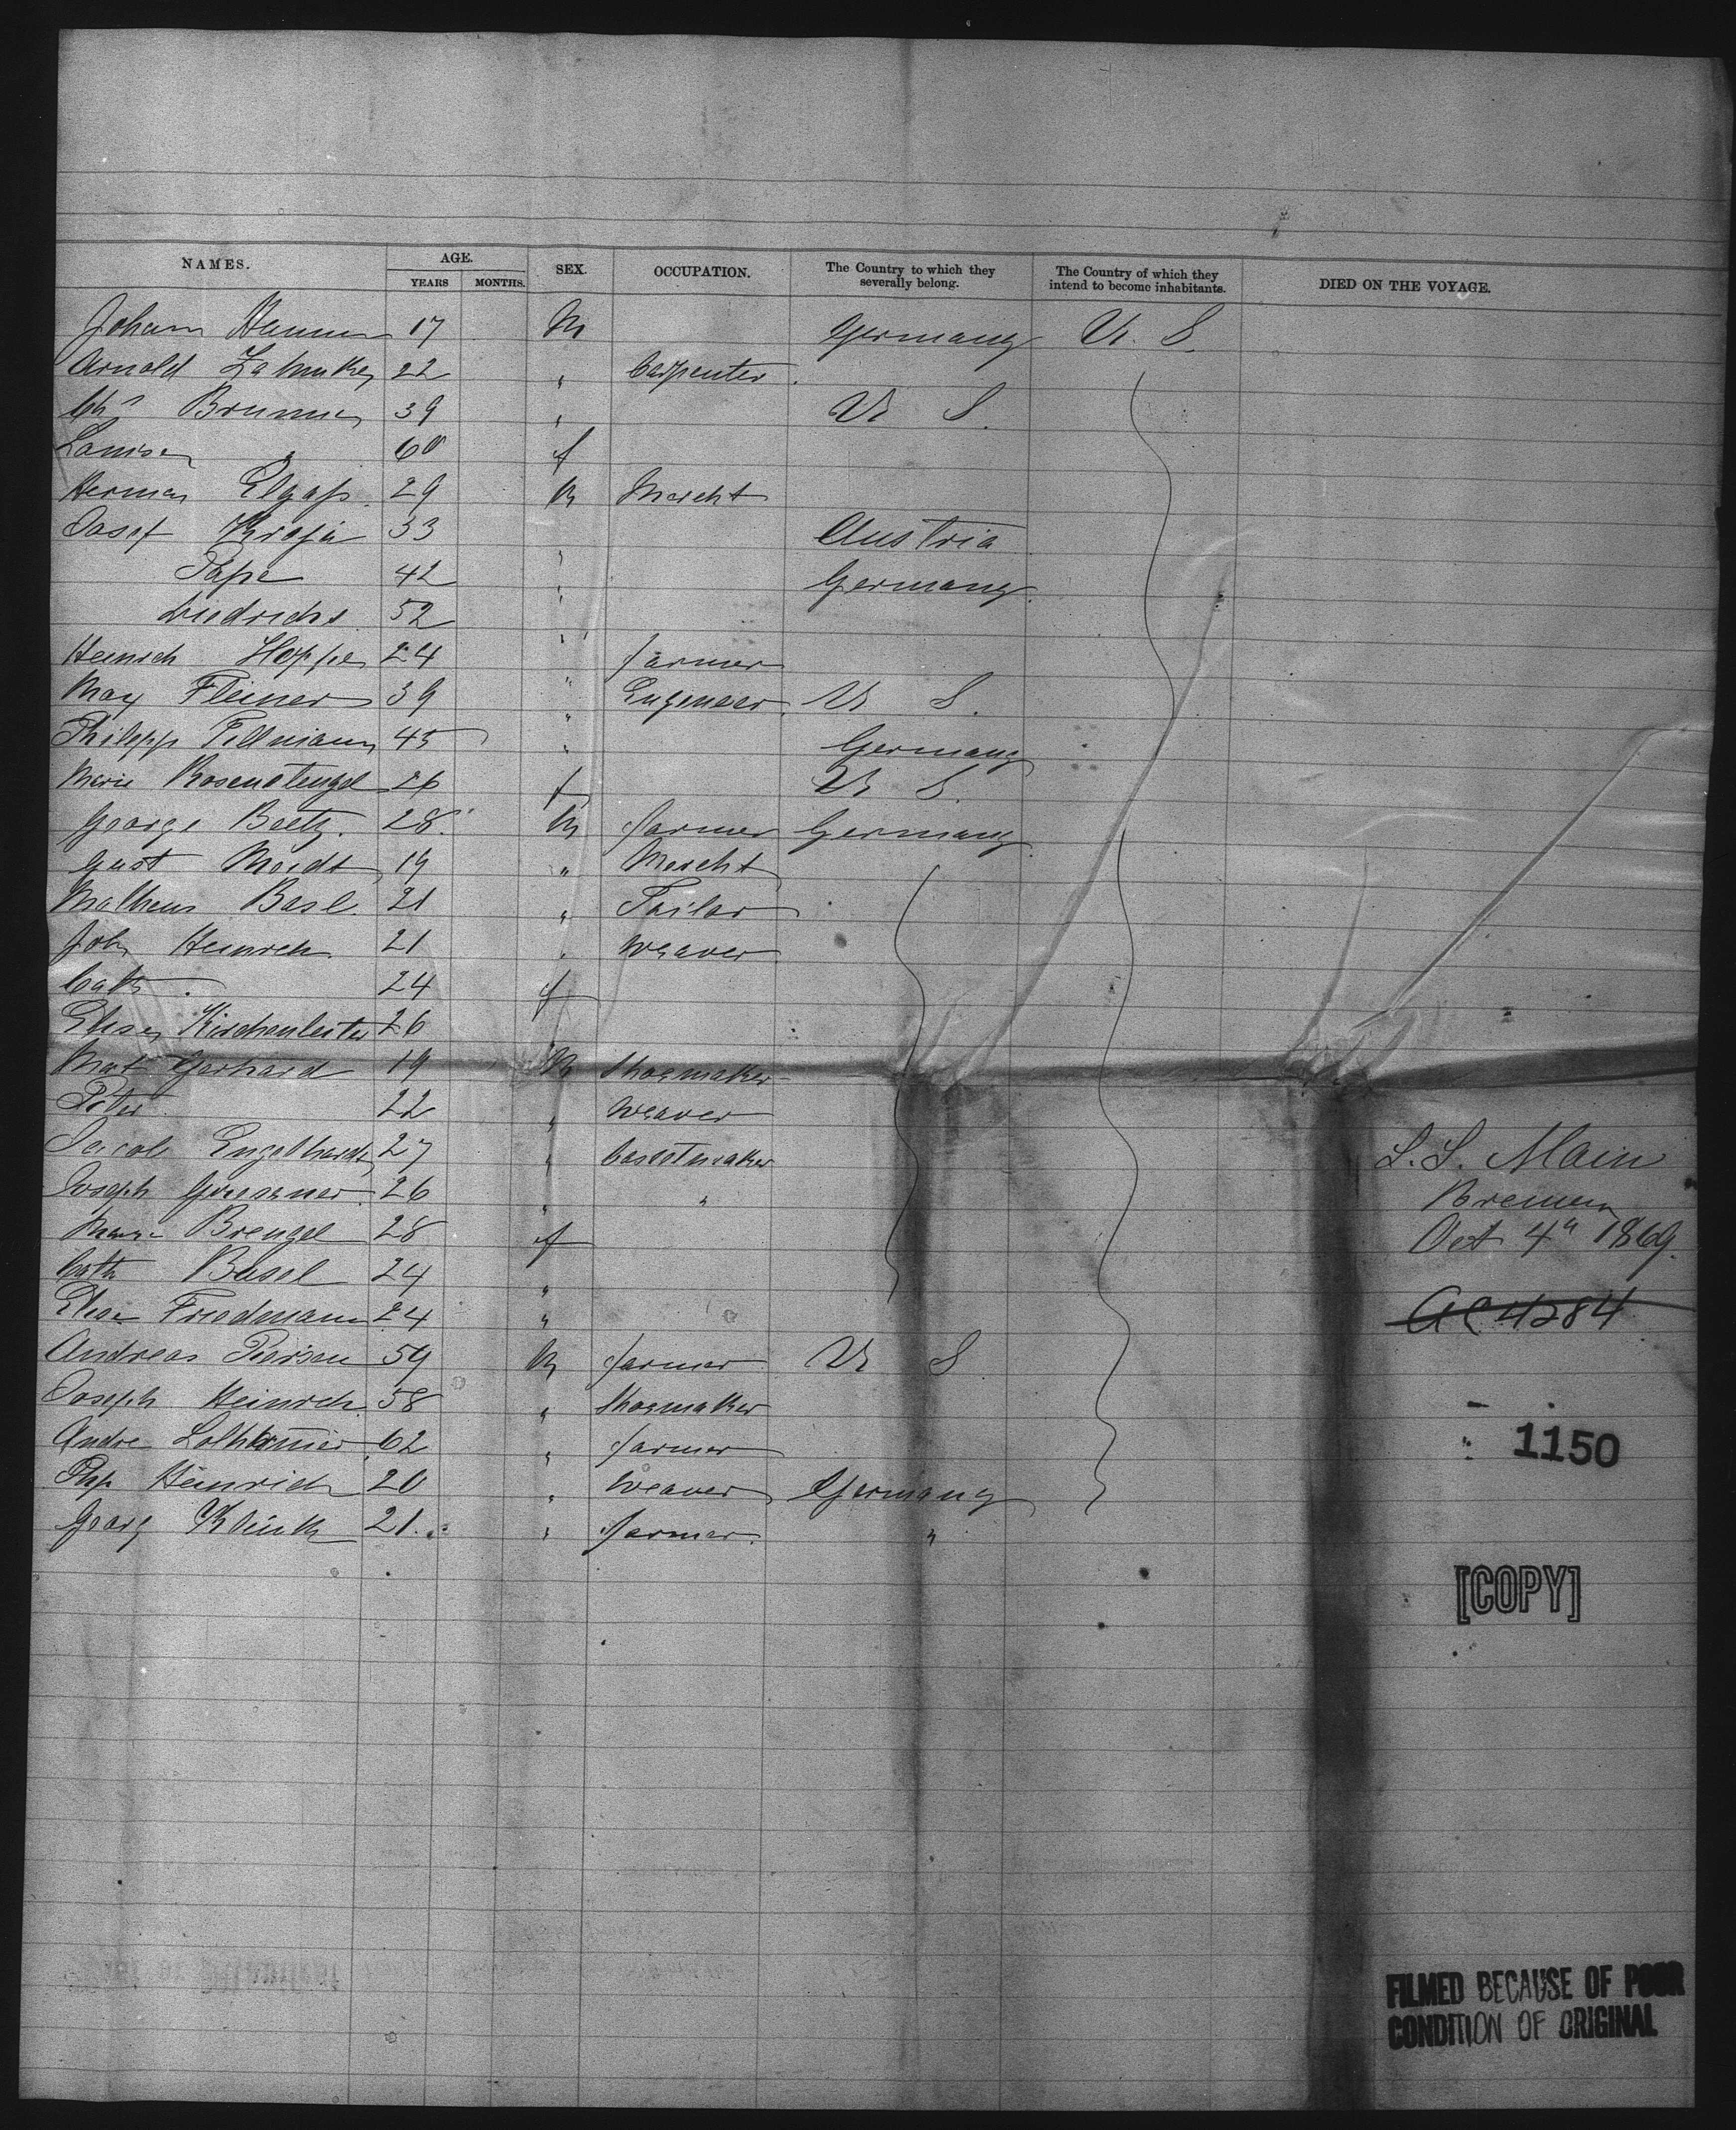 NAMES. AGE. YEARS MONTHS. SEX. OCCUPATION. The Country to which they severally belong. The Country of which they intend to become inhabitants. DIED ON THE VOYAGE.
Johann 17 M Germany U. S.
Arnold 22 " Carpenter
Chs Brunner 39 " U S.
Louise " 60 f
Herman 29 M Mercht
Josef 33 " Austria
Pape 42 " Germany
Diedrichs 52 "
Heinrich Hoppe 24 " farmer
Max Fleiner 39 " Engeneer U S.
Philipp Fellmann 45 " Germany
Marie Rosenstengel 26 f U S.
George Beetz. 28. M farmer Germany
Gust 19 " Mercht
Matheus Basl. 21 " Tailor
Joh Heinrich 21 " Weaver
Cath 24 f
Elise Kirchenleiter 26
Mat Gerhard 19 M Shoemaker
Peter 22 " Weaver
Jacob Engelhardt 27 " Casketmaker
Joseph 26 " "
Brengel 28 f
Cath Basel 24 "
Friedmann 24 "
Andreas Piersen 59 M farmer U S
Joseph Heinrich 58 " Shoemaker
Andre 62 " farmer
Php Heinrich 20 " Weaver Germany
Georg Klink 21 " farmer. "
S. S. Main
Bremen
Oct 4th 1869.
AC 4284
1150
[COPY]
FILMED BECAUSE OF POOR
CONDITION OF ORIGINAL